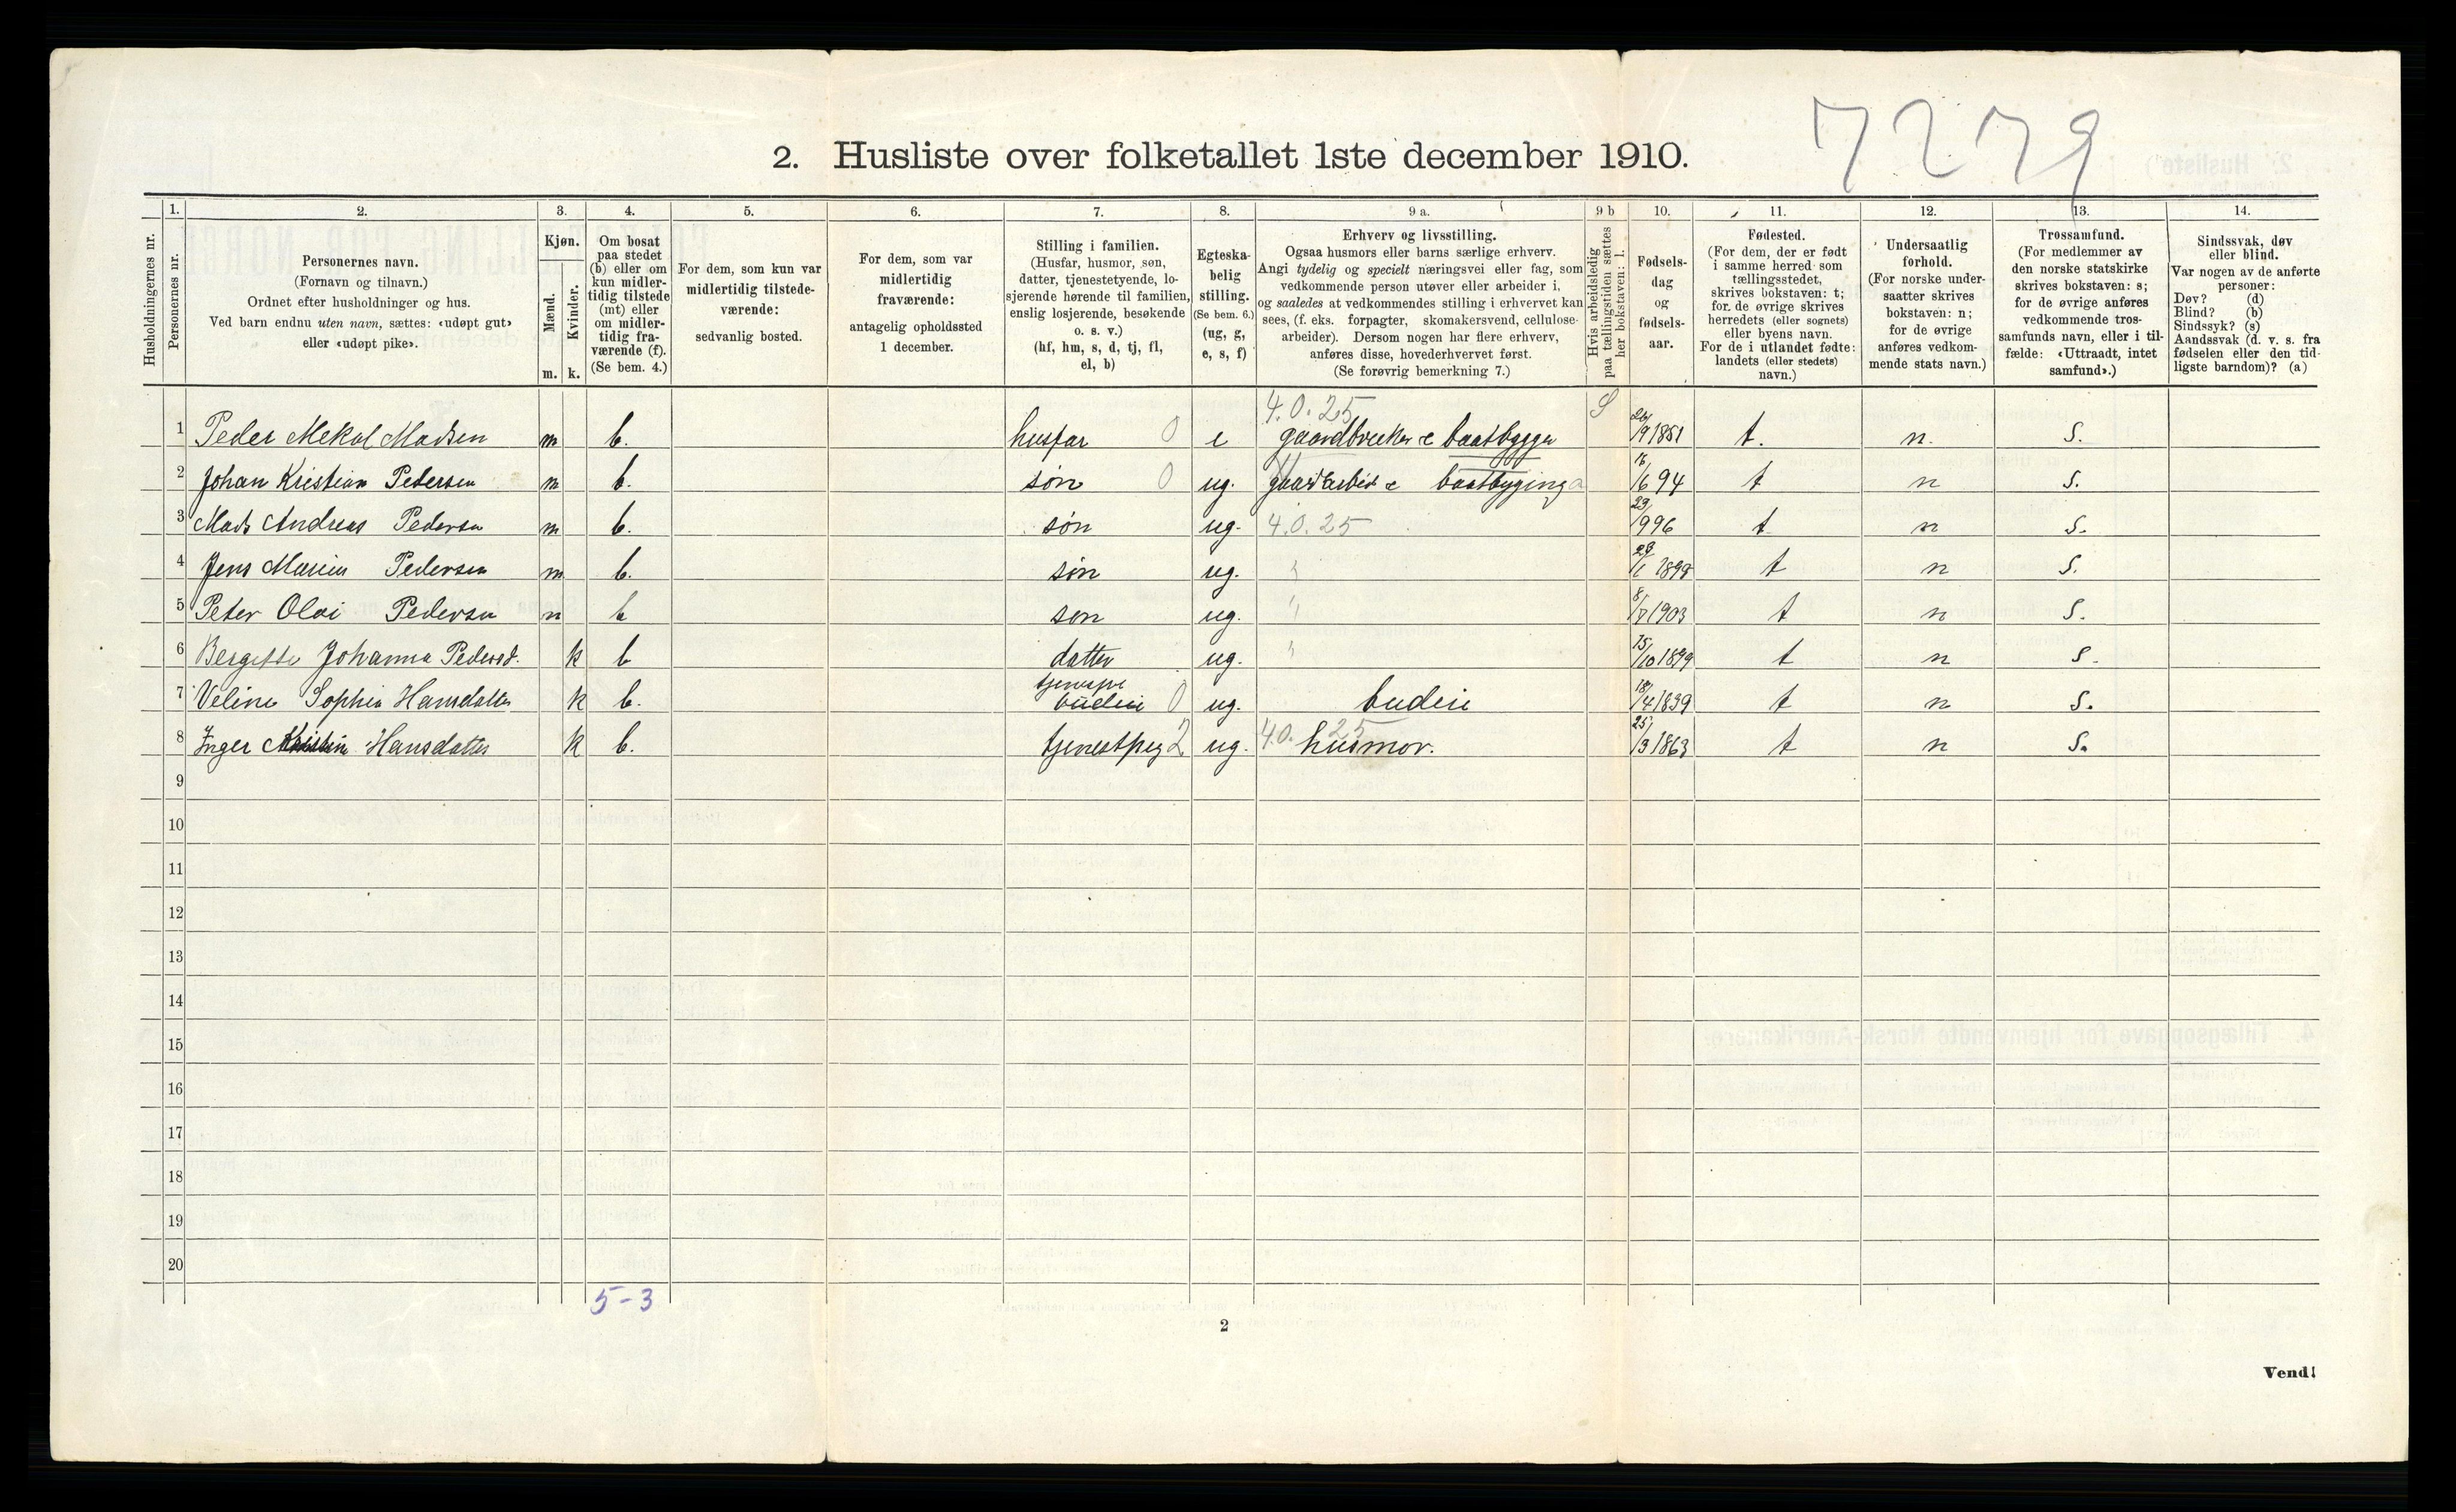 7279
2. Husliste over folketallet 1ste december 1910.
Husholdningernes nr.
1. Personernes nr.
2.
Personernes navn.
(Fornavn og tilnavn.)
Ordnet efter husholdninger og hus.
Ved barn endnu uten navn, sættes: «udøpt gut»
eller «udøpt pike».
3.
Kjøn.
Mænd.
Kvinder.
m. k.
4.
Om bosat
paa stedet
(b) eller om
kun midler-
tidig tilstede
(mt) eller
om midler-
tidig fra-
værende (f).
(Se bem. 4.)
5.
For dem, som kun var
midlertidig tilstede-
værende:
sedvanlig bosted.
6.
For dem, som var
midlertidig
fraværende:
antagelig opholdssted
1 december.
7.
Stilling i familien.
(Husfar, husmor, søn,
datter, tjenestetyende, lo-
sjerende hørende til familien,
enslig losjerende, besøkende
o. s. v.)
(hf, hm, s, d, tj, fl,
el, b)
8.
Egteska-
belig
stilling.
(Se bem. 6.)
(ug, g,
e, s, f)
9 a.
Erhverv og livsstilling.
Ogsaa husmors eller barns særlige erhverv.
Angi tydelig og specielt næringsvei eller fag, som
vedkommende person utøver eller arbeider i,
og saaledes at vedkommendes stilling i erhvervet kan
sees, (f. eks. forpagter, skomakersvend, cellulose-
arbeider). Dersom nogen har flere erhverv,
anføres disse, hovederhvervet først.
(Se forøvrig bemerkning 7.)
9 b
Hvis arbeidsledig
paa tællingstiden sættes
her bokstaven: l.
10.
Fødsels-
dag
og
fødsels-
aar.
11.
Fødested.
(For dem, der er født
i samme herred som
tællingsstedet,
skrives bokstaven: t;
for de øvrige skrives
herredets (eller sognets)
eller byens navn.
For de i utlandet fødte:
landets (eller stedets)
navn.)
12.
Undersaatlig
forhold.
(For norske under-
saatter skrives
bokstaven: n;
for de øvrige
anføres vedkom-
mende stats navn.)
13.
Trossamfund.
(For medlemmer av
den norske statskirke
skrives bokstaven: s;
for de øvrige anføres
vedkommende tros-
samfunds navn, eller i til-
fælde: «Uttraadt, intet
samfund».)
14.
Sindssvak, døv
eller blind.
Var nogen av de anførte
personer:
Døv? (d)
Blind? (b)
Sindssyk? (s)
Aandssvak (d. v. s. fra
fødselen eller den tid-
ligste barndom)? (a)
4.0.25 S
1 Peder Mekal Madsen m b. husfar 0 e gaardbruker & baatbygger 26/9 1851 t. n. S.
2 Johan Kristian Pedersen m b. søn 0 ug. gaardarbeid & baatbyging a 16/6 94 t n S.
3 Mads Andreas Pedersen m b. søn ug. 4.0.25 29/9 96 t n S.
4 Jens Marius Pedersen m b. søn ug. " 28/1 1898 t n S.
5 Peter Olai Pedersen m b søn ug. " 8/7 1903 t n S.
6 Bergitte Johanna Pedersd. k b datter ug. " 15/10 1899 t n S.
7 Veline Sophia Hansdatter k b. budeie 0 ug. budeie 18/4 1839 t n S.
8 Inger Kristin Hansdatter k b. tjenestpeg 2 ug. 4.0.25 husmor. 25/3 1863 t n S.
9
10
11
12
13
14
15
16
17
18
19
20
5-3
2
Vend!